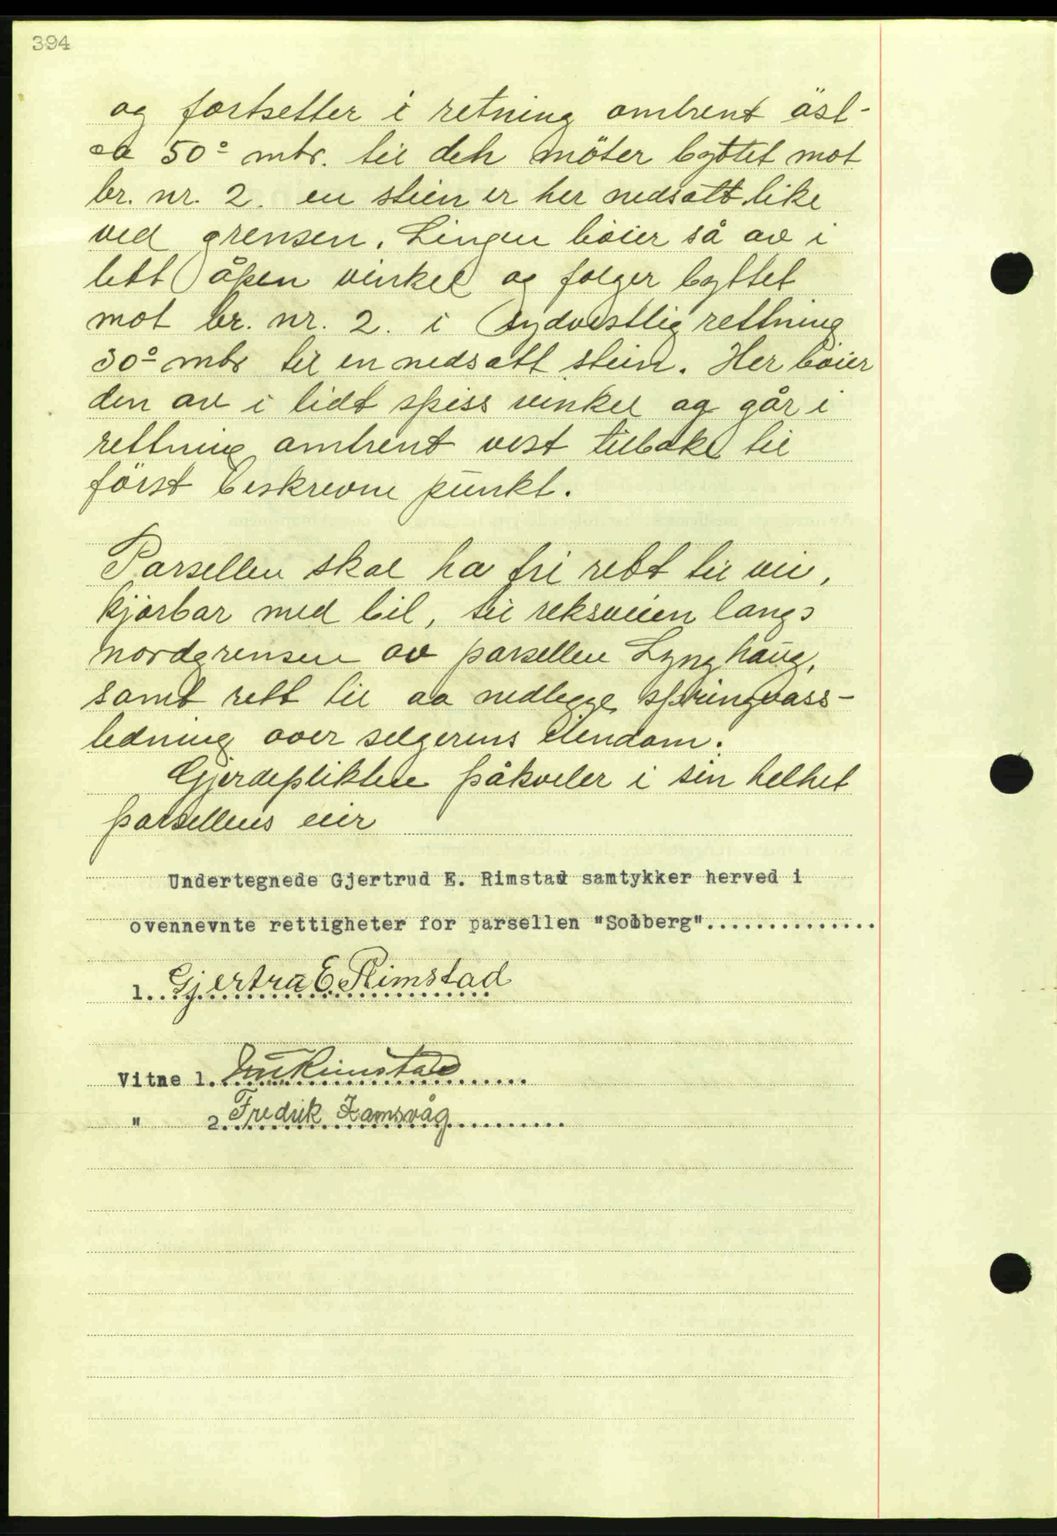 394
og fortsetter i retning ombrent öst-
ca 50º mtr. til deh möter byttet mot
br. nr. 2. en stein er her nedsatt like
ved grensen. Lingen böier så av i
lett åpen vinkel og folger byttet
mot br. nr. 2. i sydvestlig rettning
30º mtr til en nedsatt stein. Her böier
den av i lidt spiss vinkel og går i
rettning ombrent vest tilbake til
först beskrevne punkt.
Parsellen skal ha fri rett til vei,
kjörbar med bil, til reksveien langs
nordgrensen av parsellen Lynghaug,
samt rett til aa nedlegge springvass-
ledning over selgerens eiendom.
Gjerdeplikten påkviler i sin helhet
parsellens eier
Undertegnede Gjertrud E. Rimstad samtykker herved i
ovennevnte rettigheter for parsellen "Solberg"..............
1. Gjertra E. Rimstad
Vitne 1. Rimstad
" 2. Fredrik Ramsvåg